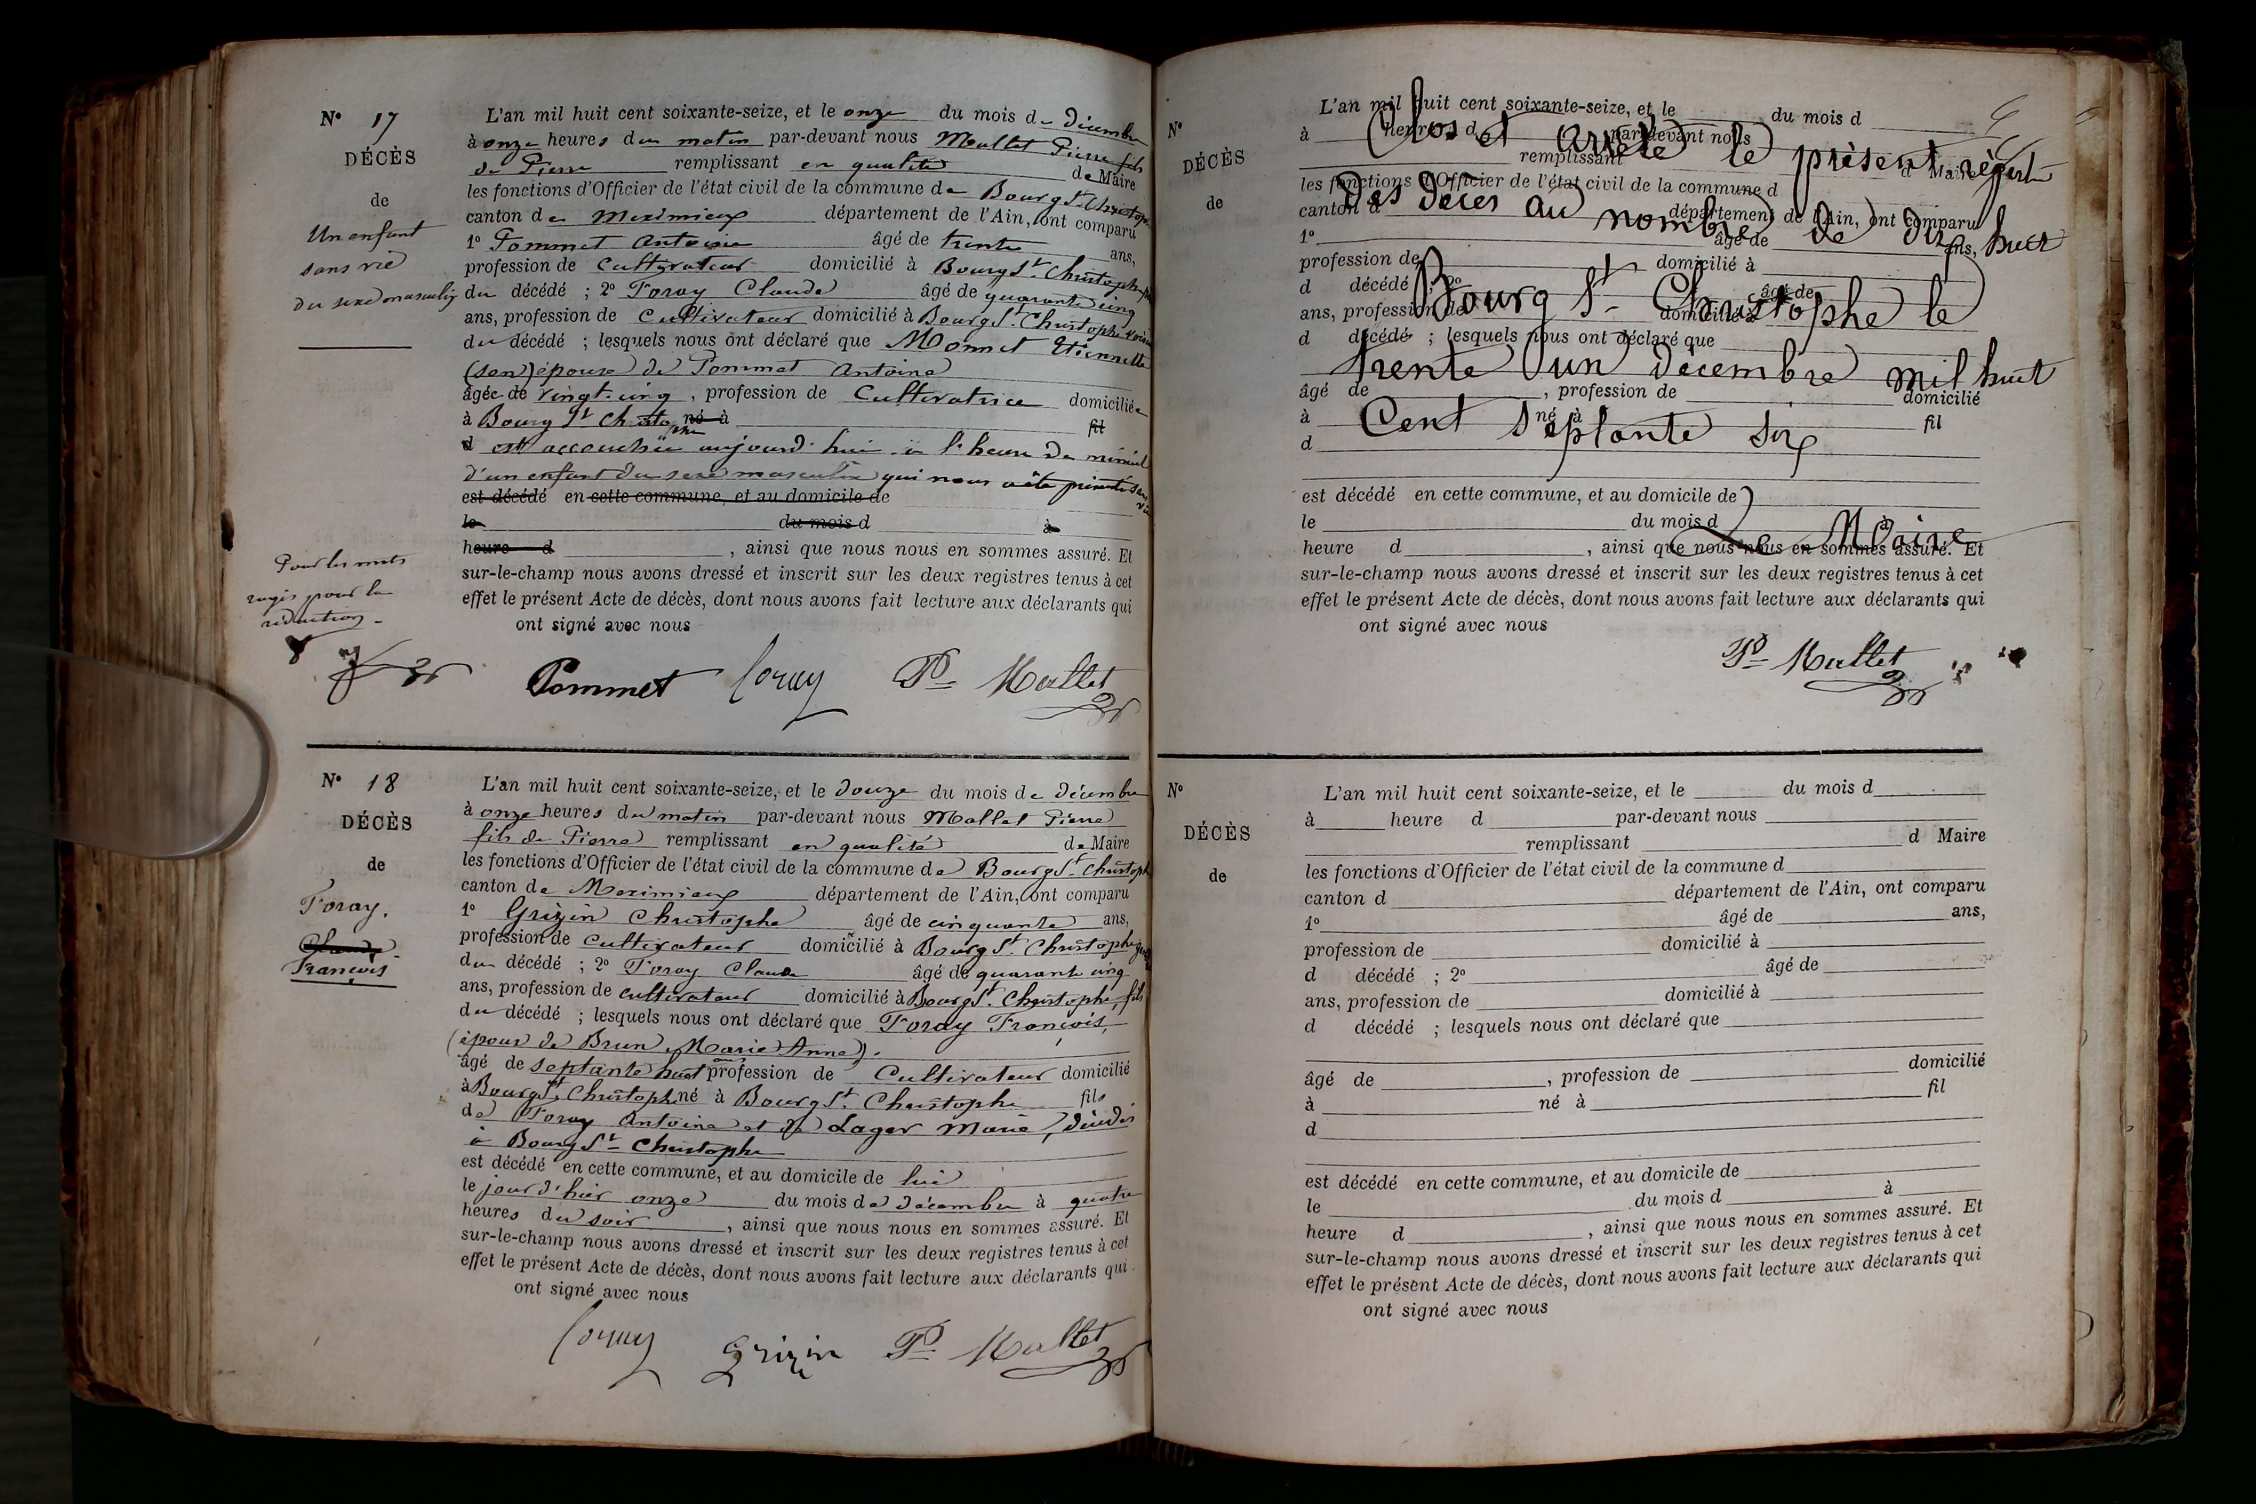 N° 17
DÉCÈS
de
Un enfant
sans vie
du sexe masculin
L'an mil huit cent soixante-seize, et le onze du mois de Décembre
à onze heures du matin par-devant nous Mallet Pierre fils
de Pierre remplissant en qualité de Maire
les fonctions d'Officier de l'état civil de la commune de Bourg St Christophe
canton de Meximieux département de l'Ain, ont comparu
1° Pommet Antoine âgé de trente ans,
profession de Cultivateur domicilié à Bourg St Christophe
du décédé ; 2° Foray Claude âgé de quarante cinq
ans, profession de Cultivateur domicilié à Bourg St Christophe voisin
du décédé ; lesquels nous ont déclaré que Monnet Etiennette
(son) épouse de Pommet Antoine
âgée de vingt-cinq, profession de Cultivatrice domiciliée
à Bourg St Christophe né à fil
d est accouchée aujourd'hui à l'heure de minuit
d'un enfant du sexe masculin qui nous a été présenté sans vie
est décédé en cette commune, et au domicile de
le du mois d à
heure d , ainsi que nous nous en sommes assuré. Et
sur-le-champ nous avons dressé et inscrit sur les deux registres tenus à cet
effet le présent Acte de décès, dont nous avons fait lecture aux déclarants qui
ont signé avec nous
Pour les mots
rayés pour la
rédaction
Pommet Foray P. Mallet
N° 18
DÉCÈS
de
Foray
Claude
François
L'an mil huit cent soixante-seize, et le douze du mois de Décembre
à onze heures du matin par-devant nous Mallet Pierre
fils de Pierre remplissant en qualité de Maire
les fonctions d'Officier de l'état civil de la commune de Bourg St Christophe
canton de Meximieux département de l'Ain, ont comparu
1° Grizin Christophe âgé de cinquante ans,
profession de cultivateur domicilié à Bourg St Christophe
du décédé ; 2° Foray Claude âgé de quarante cinq
ans, profession de cultivateur domicilié à Bourg St Christophe, fils
du décédé ; lesquels nous ont déclaré que Foray François,
(époux de Brun Marie Anne).
âgé de septante huit ans profession de Cultivateur domicilié
à Bourg St Christophe né à Bourg St Christophe fils
de Foray Antoine et de Lager Marie, décédés
à Bourg St Christophe
est décédé en cette commune, et au domicile de lui
le jour d'hier onze du mois de décembre à quatre
heures du soir, ainsi que nous nous en sommes assuré. Et
sur-le-champ nous avons dressé et inscrit sur les deux registres tenus à cet
effet le présent Acte de décès, dont nous avons fait lecture aux déclarants qui
ont signé avec nous
Foray Grizin P. Mallet
N°
DÉCÈS
de
L'an mil huit cent soixante-seize, et le du mois d
à heure d par-devant nous
Clos et arrêté le présent régistre
remplissant d Maire
les fonctions d'Officier de l'état civil de la commune d
des décès au nombre de dix huit
canton d département de l'Ain, ont comparu
1° âgé de ans,
profession de domicilié à
d décédé ; 2° âgé de
Bourg St Christophe le
ans, profession de domicilié à
d décédé ; lesquels nous ont déclaré que
trente un décembre mil huit
âgé de , profession de domicilié
à né à fil
Cent septante six
d
est décédé en cette commune, et au domicile de
le du mois d à
Le Maire
heure d , ainsi que nous nous en sommes assuré. Et
sur-le-champ nous avons dressé et inscrit sur les deux registres tenus à cet
effet le présent Acte de décès, dont nous avons fait lecture aux déclarants qui
ont signé avec nous
P. Mallet
N°
DÉCÈS
de
L'an mil huit cent soixante-seize, et le du mois d
à heure d par-devant nous
remplissant d Maire
les fonctions d'Officier de l'état civil de la commune d
canton d département de l'Ain, ont comparu
1° âgé de ans,
profession de domicilié à
d décédé ; 2° âgé de
ans, profession de domicilié à
d décédé ; lesquels nous ont déclaré que
âgé de , profession de domicilié
à né à fil
d
est décédé en cette commune, et au domicile de
le du mois d à
heure d , ainsi que nous nous en sommes assuré. Et
sur-le-champ nous avons dressé et inscrit sur les deux registres tenus à cet
effet le présent Acte de décès, dont nous avons fait lecture aux déclarants qui
ont signé avec nous